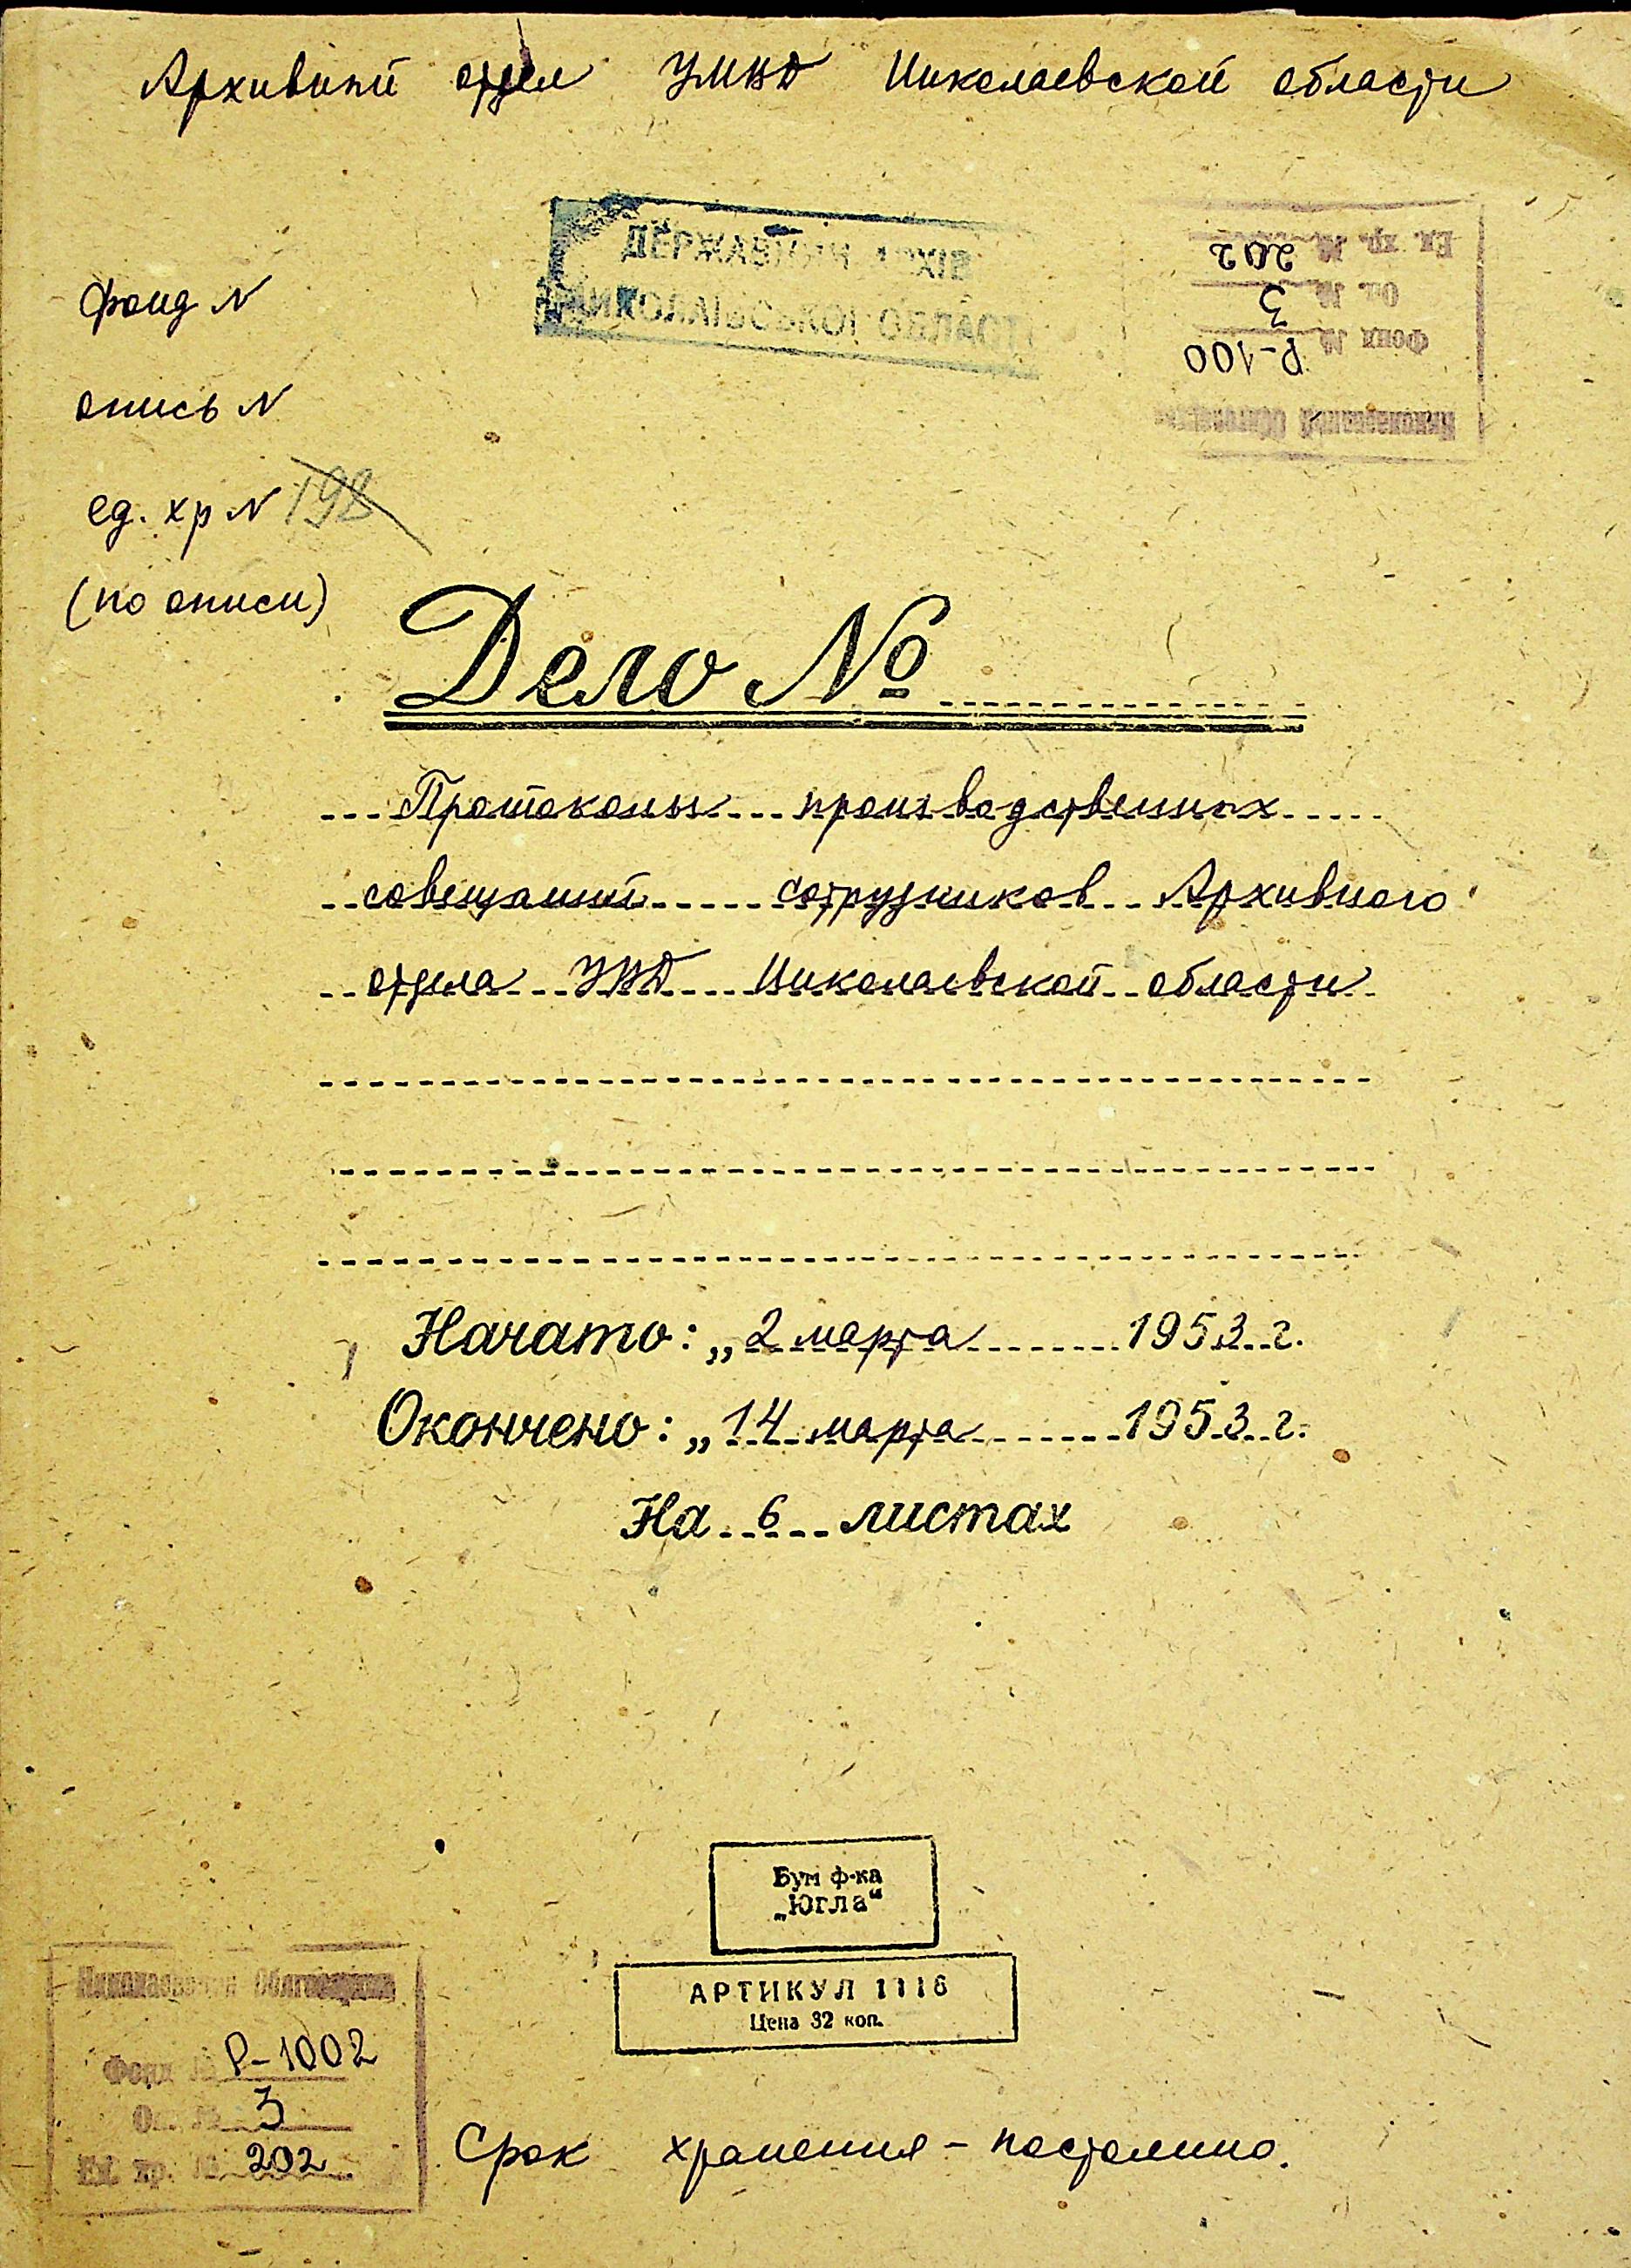 Архивный отдел УМВД Николаевской области
ДЕРЖАВНИЙ АРХІВ
МИКОЛАЇВСЬКОЇ ОБЛАСТІ
Ед. хр. № 202
Оп. № 3
Фонд № Р-100
Николаевский Облгосархив
фонд N
опись N
ед. хр N 198
(по описи)
Дело №
Протоколы производственных
совещаний сотрудников Архивного
отдела УВД Николаевской области
Начато: „2 марта 1953 г.
Окончено: „14 марта 1953 г.
На 6 листах
Бум ф-ка
„Югла“
АРТИКУЛ 1116
Цена 32 коп.
Николаевский Облгосархив
Фонд № Р-1002
Оп. № 3
Ед. хр. № 202
Срок хранения - постоянно.